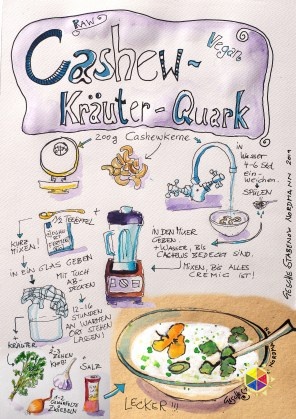 RAW
Vegan
Cashew-
Kräuter-Quark
200g Cashewkerne
in
Wasser
4-6 Std.
ein-
weichen.
SPÜLEN
1/2 TEELÖFFEL
KURZ
MIXEN!
IN DEN MIXER
GEBEN.
+ WASSER, BIS
CASHEWS BEDECKT SIND.
MIXEN, BIS ALLES
CREMIG IST!
IN EIN GLAS GEBEN
MIT TUCH
AB-
DECKEN
12-16
STUNDEN
AN WARMEN
ORT STEHEN
LASSEN!
KRÄUTER
2-3
ZEHEN
KNOBI
SALZ
1-2
ZWIEBELN
LECKER!!!
GESCHE STABENOW NORDMANN 2019